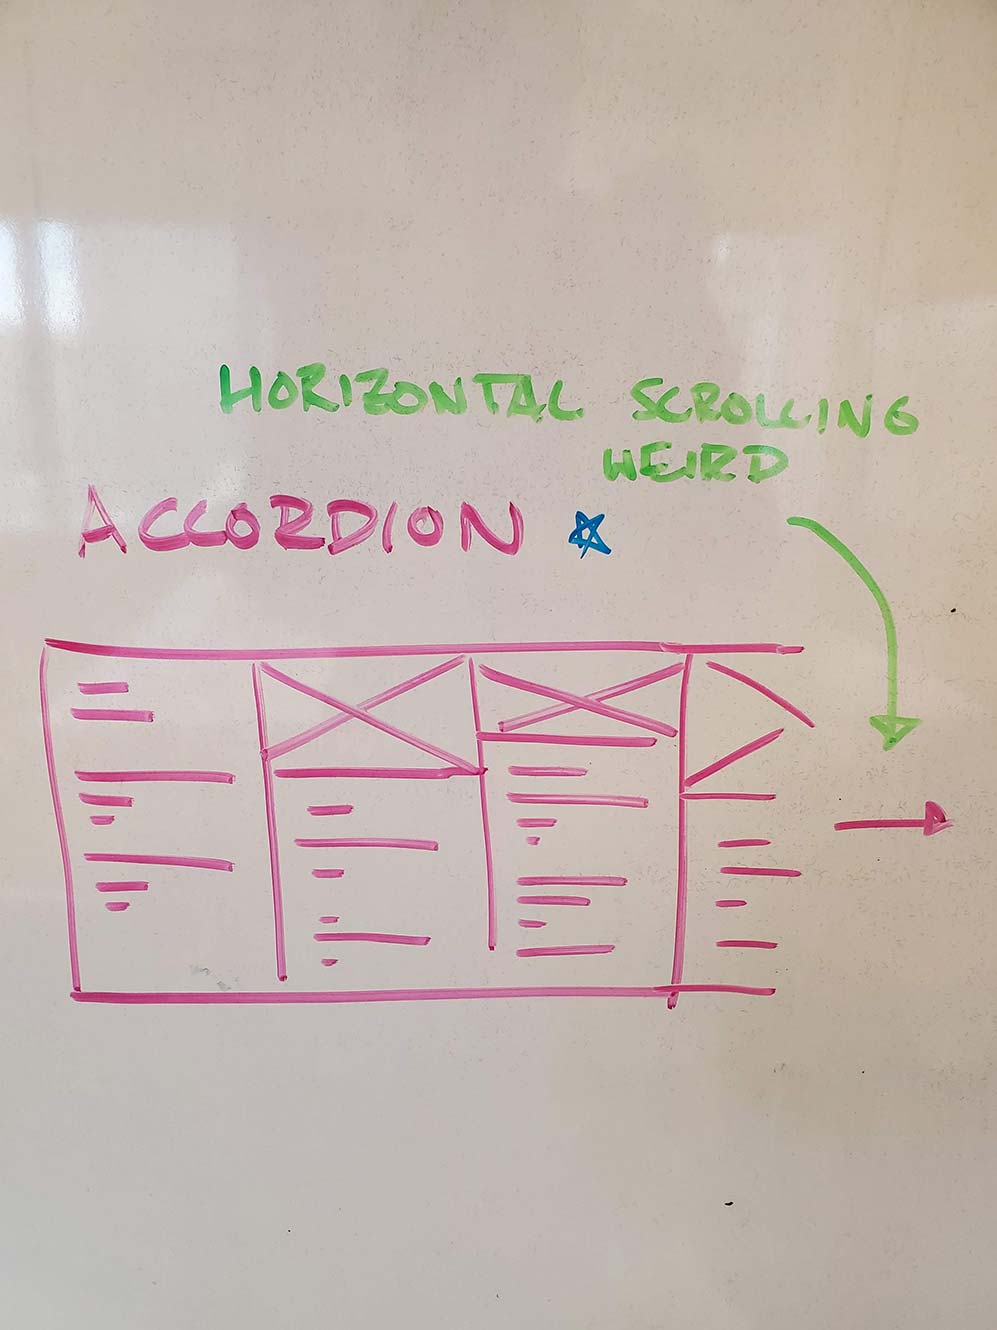 HORIZONTAL SCROLLING
WEIRD
ACCORDION